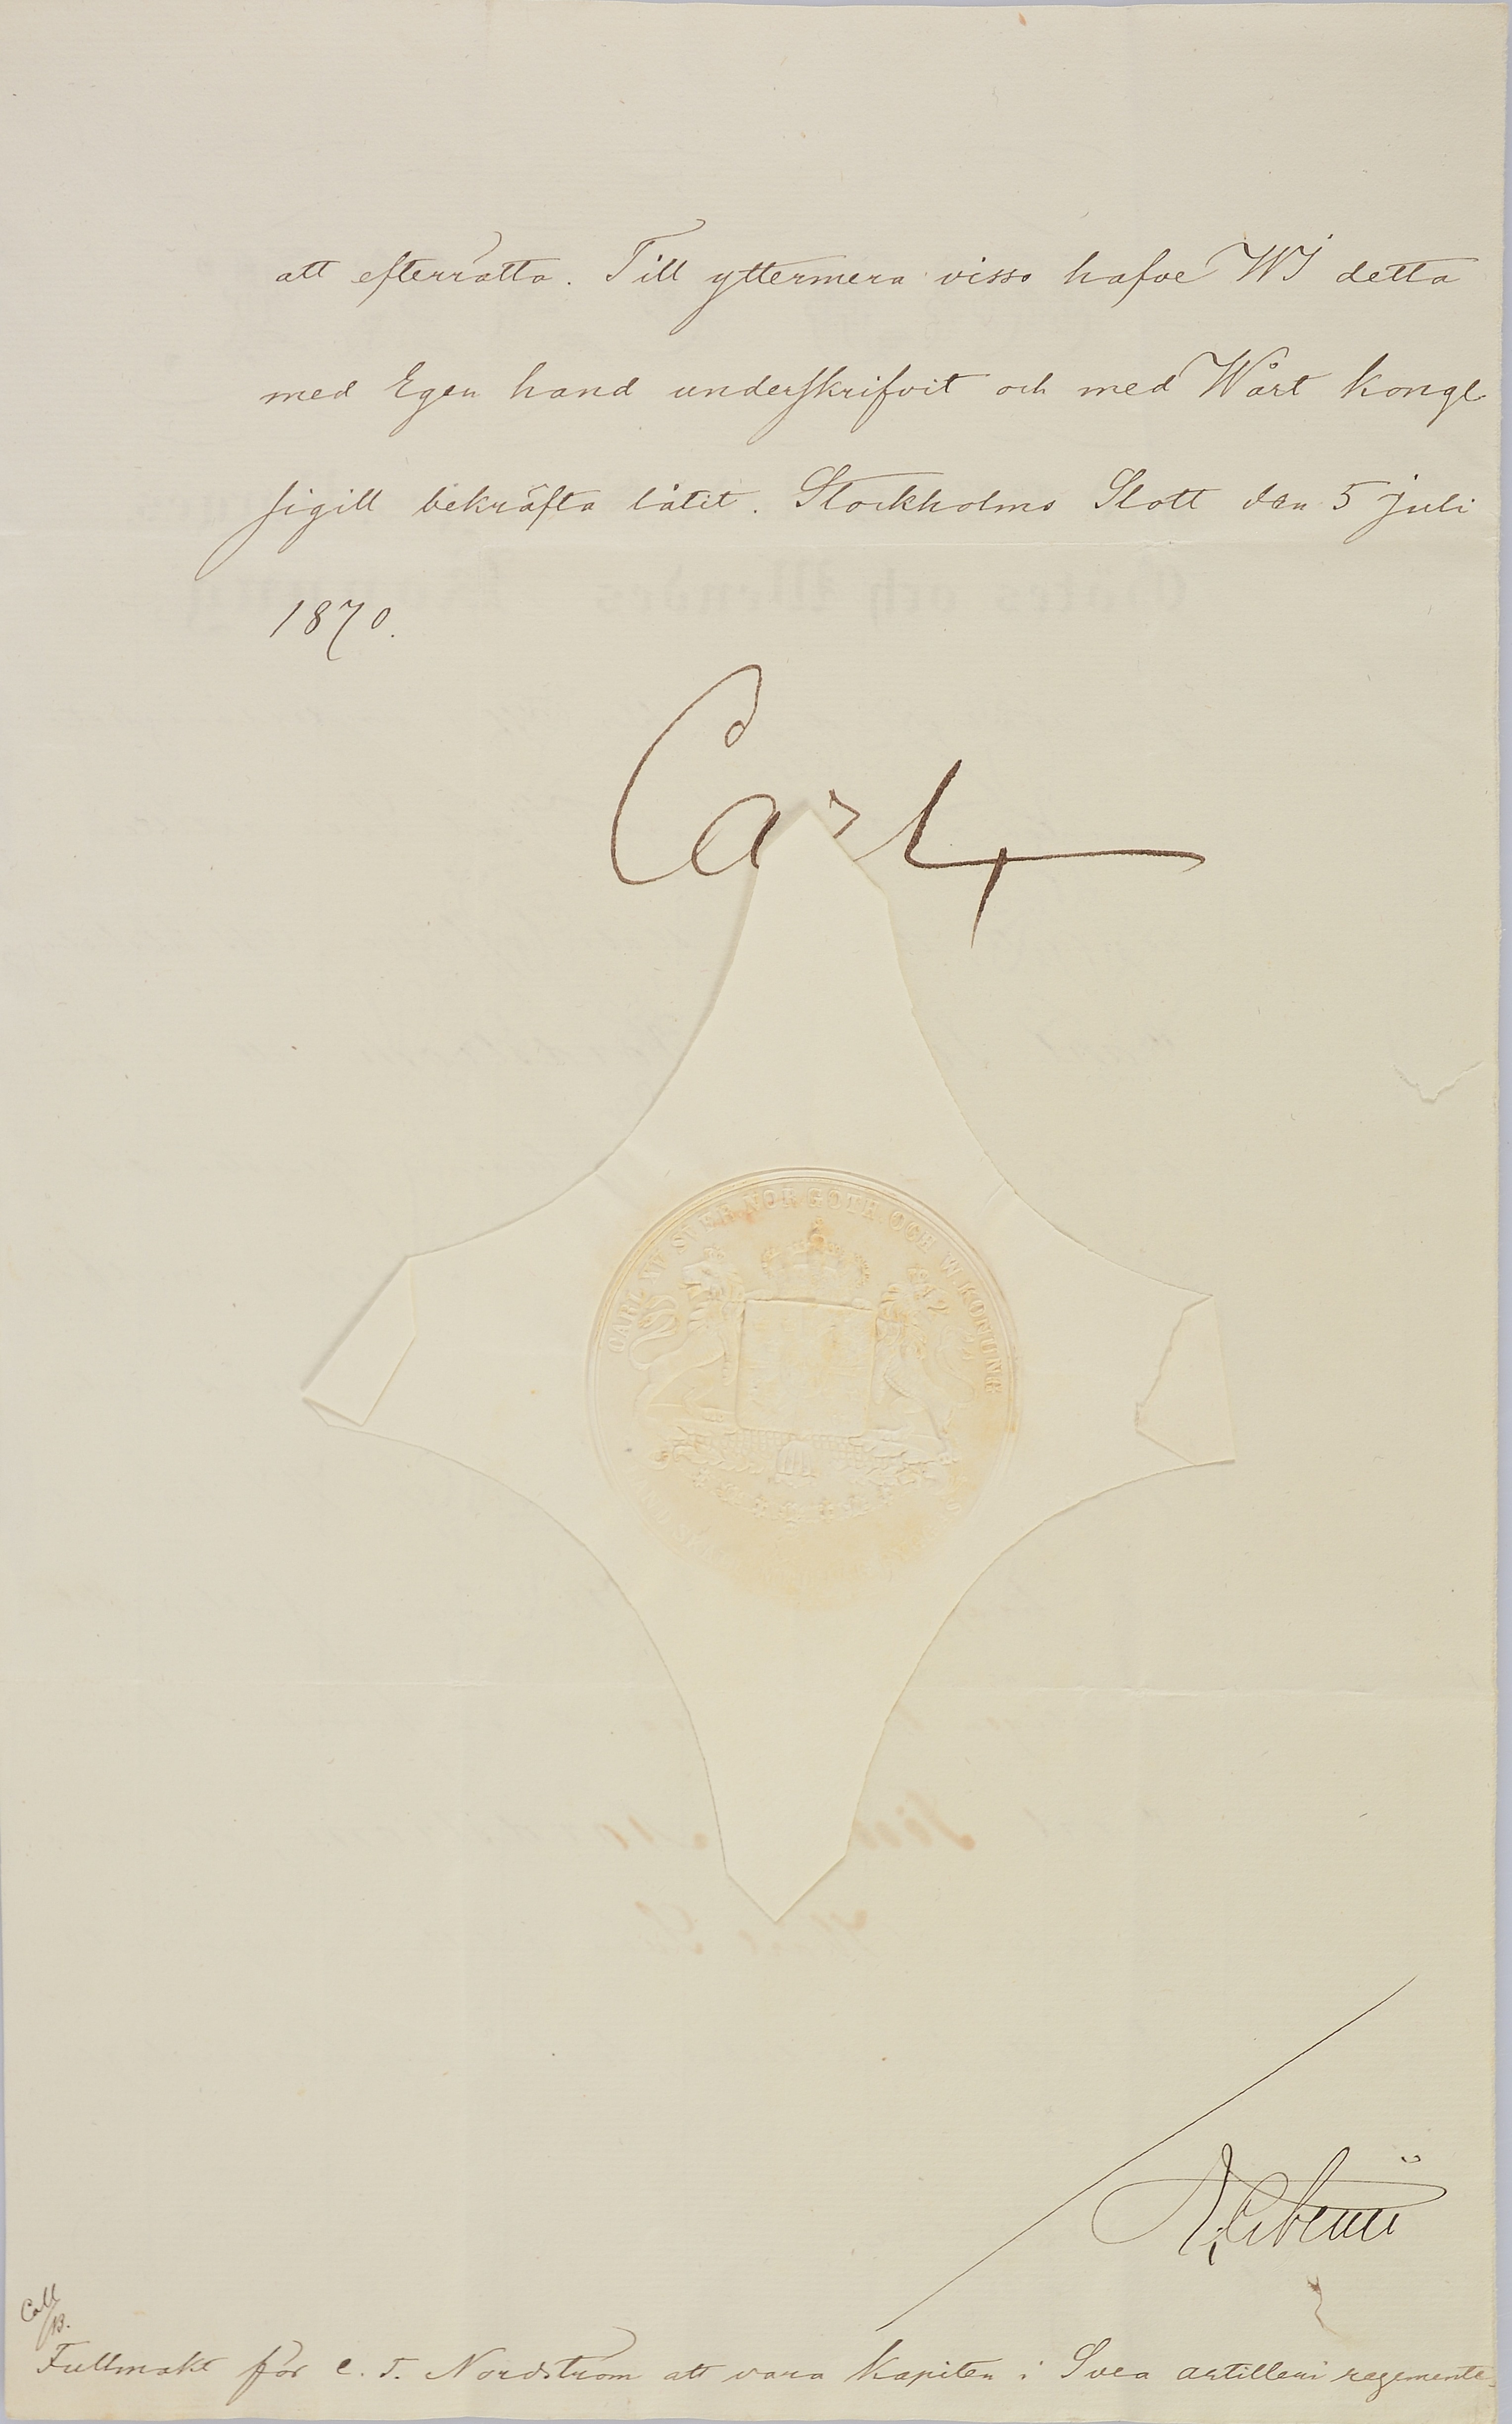 att efterrätta. Till yttermera visso hafve WI detta
med Egen hand underskrifvit och med Wårt Kongl
Sigill bekräfta låtit. Stockholms Slott den 5 juli
1870.
Carl
CARL XV SVER. NOR. GÖTH. OCH W. KONUNG
Coll
B.
Fullmakt för C. T. Nordström att vara Kapiten i Svea artilleri regemente.